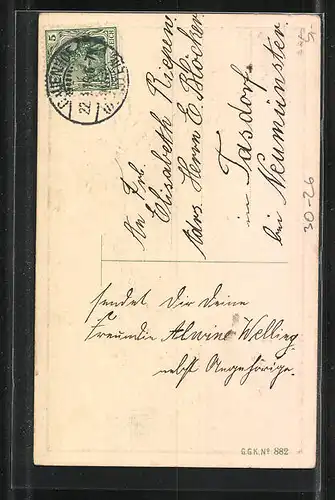 An Frl.
Elisabeth Riepen
Adrs. Herrn C. Blöcker
in Tasdorf
bei Neumünster
sendet Dir Deine
Freundin Alwine Welling
nebst Angehörige.
30-26
G.G.K. No 882
5
22.